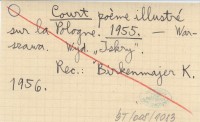 Court poème illustré
sur la Pologne. 1955. — War-
szawa. Wyd. „Iskry".
Rec.: Birkenmajer K.
1956.